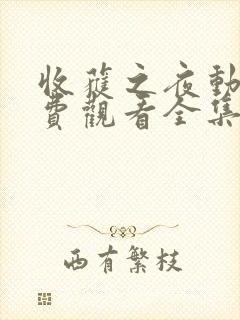 收穫之夜動
費觀看全集
西有繁枝